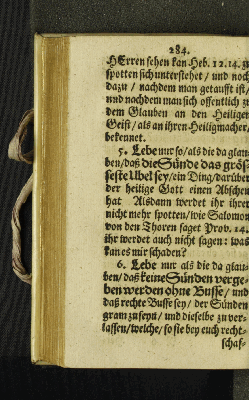 284.
HErren sehen kan Heb. 12. 14. zu
spotten sich unterstehet / und noch
dazu / nachdem man getaufft ist /
und nachdem man sich offentlich zu
dem Glauben an den Heiligen
Geist / als an ihren Heiligmacher /
bekennet.
5. Lebe nur so / als die da glau-
ben / daß die Sünde das grös-
seste Ubel sey / ein Ding / darüber
der heilige Gott einen Abscheu
hat Alsdann werdet ihr ihrer
nicht mehr spotten / wie Salomon
von den Thoren saget Prov. 14.
ihr werdet auch nicht sagen: was
kan es mir schaden?
6. Lebe nur als die da glau-
ben / daß keine Sünden verge-
ben werden ohne Busse / und
daß rechte Busse sey / der Sünden
gram zu seyn / und dieselbe zu ver-
lassen / welche / so sie bey euch recht-
schaf-